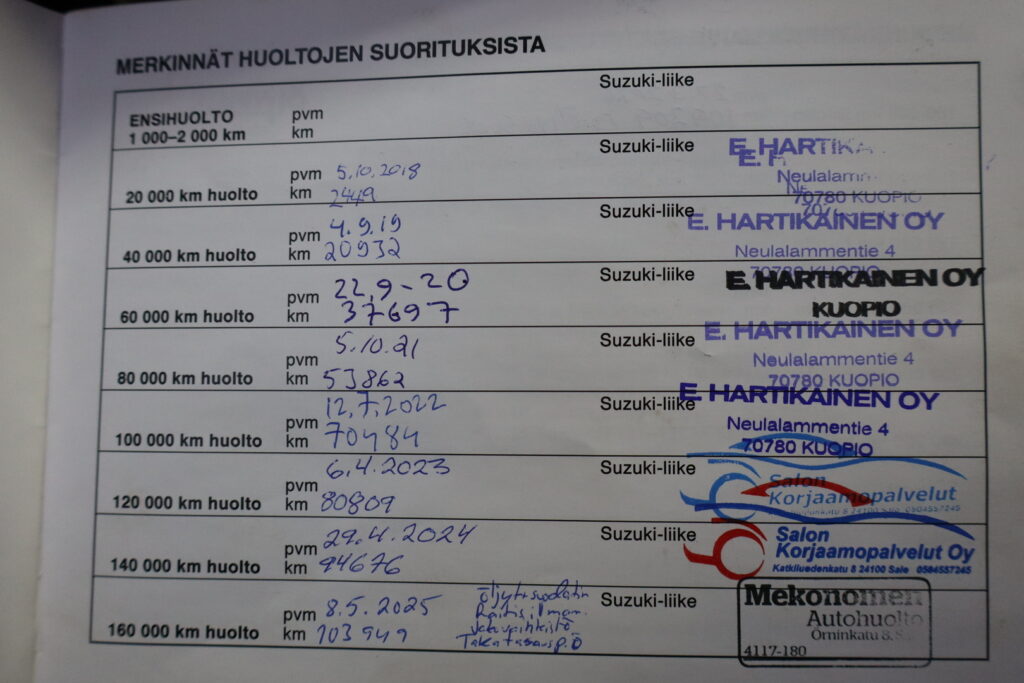 MERKINNÄT HUOLTOJEN SUORITUKSISTA
ENSIHUOLTO
1 000–2 000 km
pvm
km
Suzuki-liike
20 000 km huolto
pvm 5.10.2018
km 2449
Suzuki-liike
E. HARTIKA
E. H
Neulalamm
Ne
70780 KUOPIO
40 000 km huolto
pvm 4.9.19
km 20932
Suzuki-liike
E. HARTIKAINEN OY
Neulalammentie 4
70780 KUOPIO
60 000 km huolto
pvm 22.9-20
km 37697
Suzuki-liike
E. HARTIKAINEN OY
KUOPIO
80 000 km huolto
pvm 5.10.21
km 53862
Suzuki-liike
E. HARTIKAINEN OY
Neulalammentie 4
70780 KUOPIO
100 000 km huolto
pvm 12.7.2022
km 70484
Suzuki-liike
E. HARTIKAINEN OY
Neulalammentie 4
70780 KUOPIO
120 000 km huolto
pvm 6.4.2023
km 80809
Suzuki-liike
Salon
Korjaamopalvelut
8 24100 Salo 0504557245
140 000 km huolto
pvm 29.4.2024
km 94676
Suzuki-liike
Salon
Korjaamopalvelut Oy
Katkiluodenkatu 8 24100 Salo
160 000 km huolto
pvm 8.5.2025
km 103949
öljyt+suodatin
Suzuki-liike
Mekonomen
Autohuolto
Örninkatu 8
4117-180